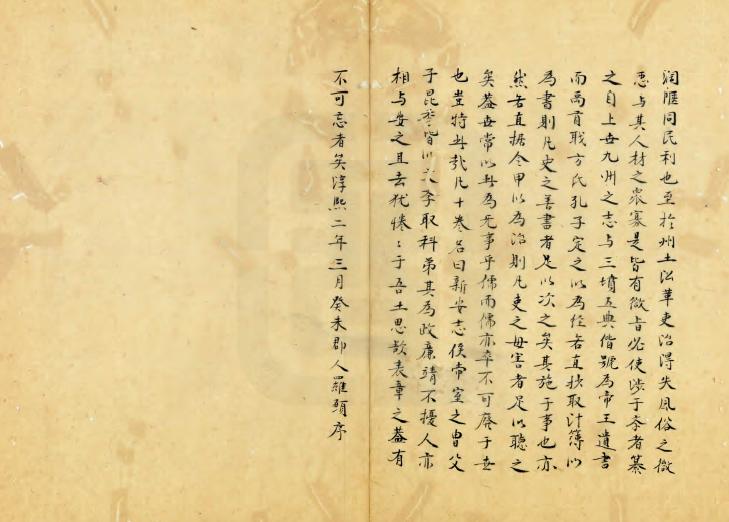 润匯同民利也至於州土沿革吏治得失風俗之媺
惡与其人材之衆寡是皆有微旨必使涉于學者纂
之自上世九州之志与三墳五典偕號為帝王遺書
而禹貢職方氏孔子定之以為經若直抄取計簿以
為書則凡史之善書者足以次之矣其施于事也亦
然若直据令甲以為治則凡吏之毋害者足以聽之
矣蓋世常以此為无事乎儒而儒亦卒不可廢于世
也豈特此哉凡十卷名曰新安志侯帝室之曾父
子昆季皆以文學取科第其為政廉靖不擾人亦
相与安之且去犹惓〻于吾土思欲表章之蓋有
不可忘者矣淳熙二年三月癸未郡人羅頭序